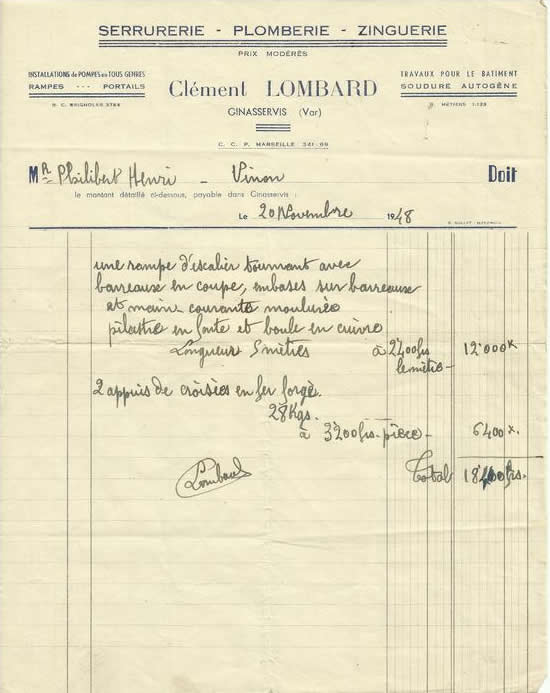 SERRURERIE - PLOMBERIE - ZINGUERIE
PRIX MODÉRÉS
INSTALLATIONS de POMPES en TOUS GENRES
RAMPES --- PORTAILS
R. C. BRIGNOLES 3788
Clément LOMBARD
GINASSERVIS (Var)
TRAVAUX POUR LE BATIMENT
SOUDURE AUTOGÈNE
R. MÉTIERS 1.123
C. C. P. MARSEILLE 341-69
MR Philibert Henri - Vinon Doit
le montant détaillé ci-dessous, payable dans Ginasservis :
Le 20 Novembre 1948
une rampe d'escalier tournant avec
barreaux en coupe, embases sur barreaux
et main courante moulurée
pilastre en fonte et boule en cuivre
Longueur 5 mètres à 2400 frs 12000
le mètre -
2 appuis de croisées en fer forgé.
28 Kgs.
à 3200 frs pièce - 6400
Lombard Total 18400 frs.